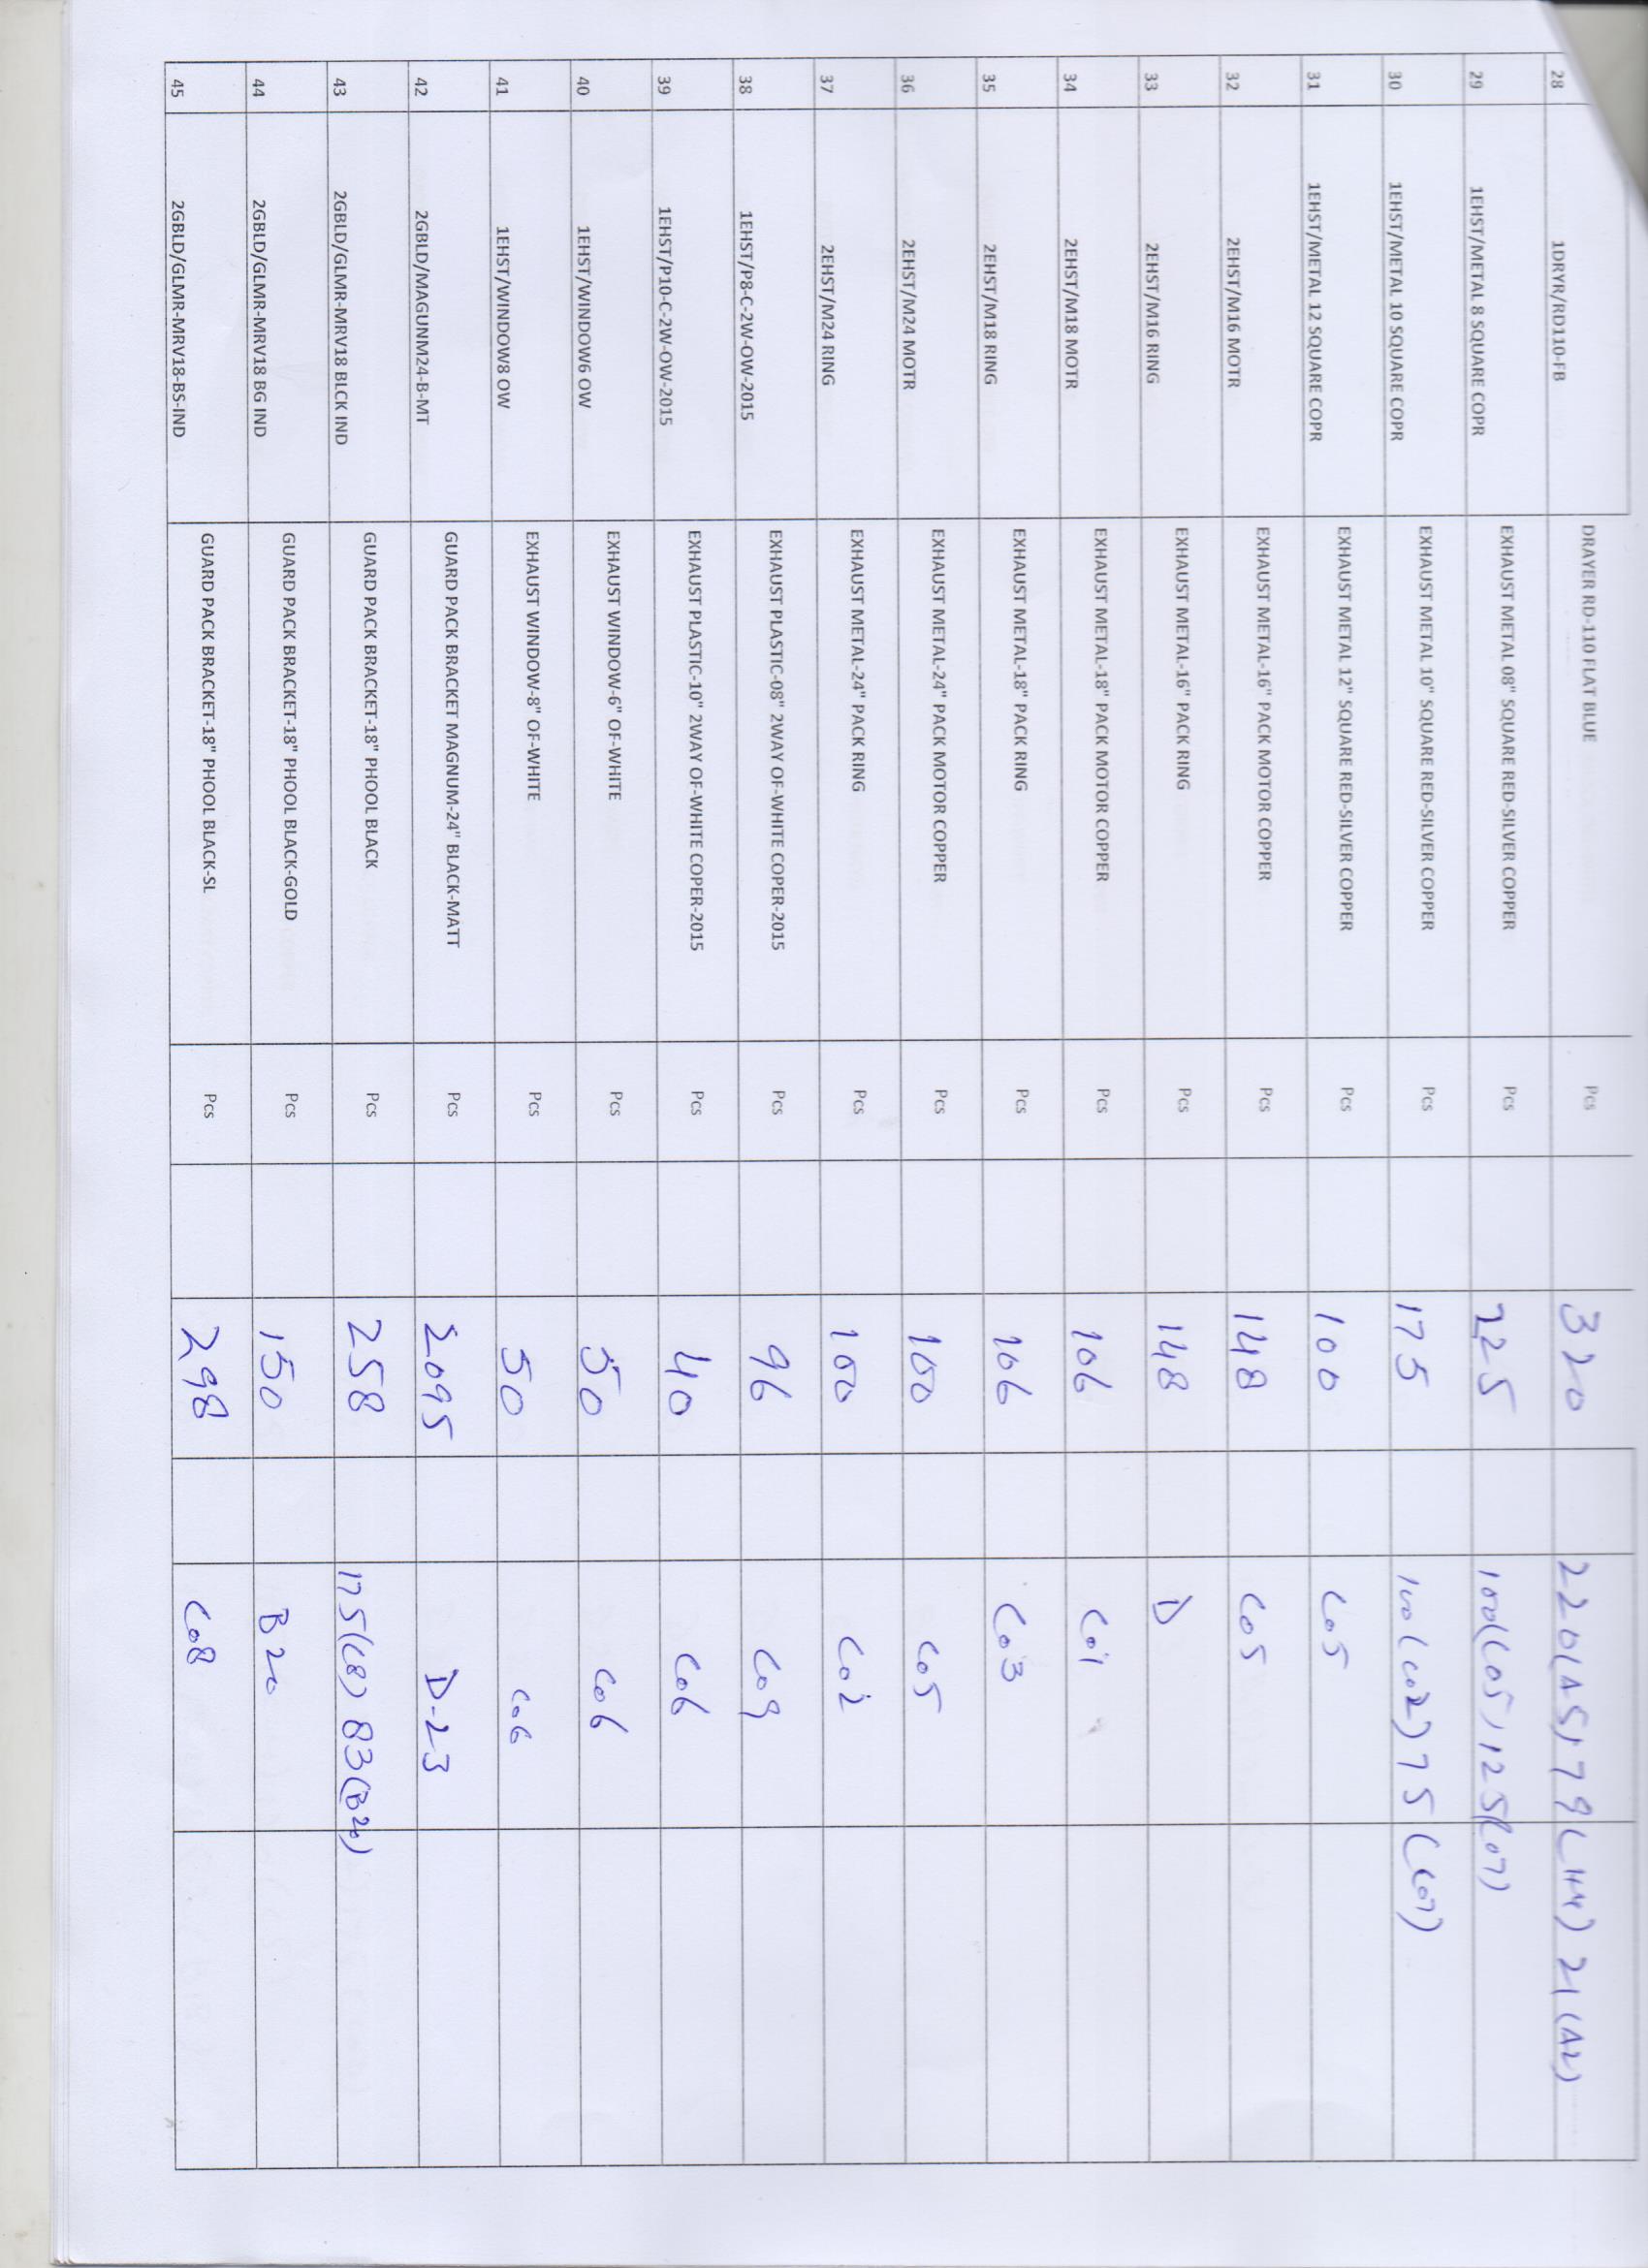 28 1DRYR/RD110-FB DRAYER RD-110 FLAT BLUE Pcs 320 220(A5) 79(H4) 21(A2)
29 1EHST/METAL 8 SQUARE COPR EXHAUST METAL 08" SQUARE RED-SILVER COPPER Pcs 225 100(C05) 125(C07)
30 1EHST/METAL 10 SQUARE COPR EXHAUST METAL 10" SQUARE RED-SILVER COPPER Pcs 175 100(C02) 75(C07)
31 1EHST/METAL 12 SQUARE COPR EXHAUST METAL 12" SQUARE RED-SILVER COPPER Pcs 100 C05
32 2EHST/M16 MOTR EXHAUST METAL-16" PACK MOTOR COPPER Pcs 148 C05
33 2EHST/M16 RING EXHAUST METAL-16" PACK RING Pcs 148 D
34 2EHST/M18 MOTR EXHAUST METAL-18" PACK MOTOR COPPER Pcs 106 C01
35 2EHST/M18 RING EXHAUST METAL-18" PACK RING Pcs 106 C03
36 2EHST/M24 MOTR EXHAUST METAL-24" PACK MOTOR COPPER Pcs 100 C05
37 2EHST/M24 RING EXHAUST METAL-24" PACK RING Pcs 100 C02
38 1EHST/P8-C-2W-OW-2015 EXHAUST PLASTIC-08" 2WAY OF-WHITE COPER-2015 Pcs 96 C09
39 1EHST/P10-C-2W-OW-2015 EXHAUST PLASTIC-10" 2WAY OF-WHITE COPER-2015 Pcs 40 C06
40 1EHST/WINDOW6 OW EXHAUST WINDOW-6" OF-WHITE Pcs 50 C06
41 1EHST/WINDOW8 OW EXHAUST WINDOW-8" OF-WHITE Pcs 50 C06
42 2GBLD/MAGUNM24-B-MT GUARD PACK BRACKET MAGNUM-24" BLACK-MATT Pcs 2095 D-23
43 2GBLD/GLMR-MRV18 BLCK IND GUARD PACK BRACKET-18" PHOOL BLACK Pcs 258 175(C8) 83(B20)
44 2GBLD/GLMR-MRV18 BG IND GUARD PACK BRACKET-18" PHOOL BLACK-GOLD Pcs 150 B20
45 2GBLD/GLMR-MRV18-BS-IND GUARD PACK BRACKET-18" PHOOL BLACK-SL Pcs 298 C08